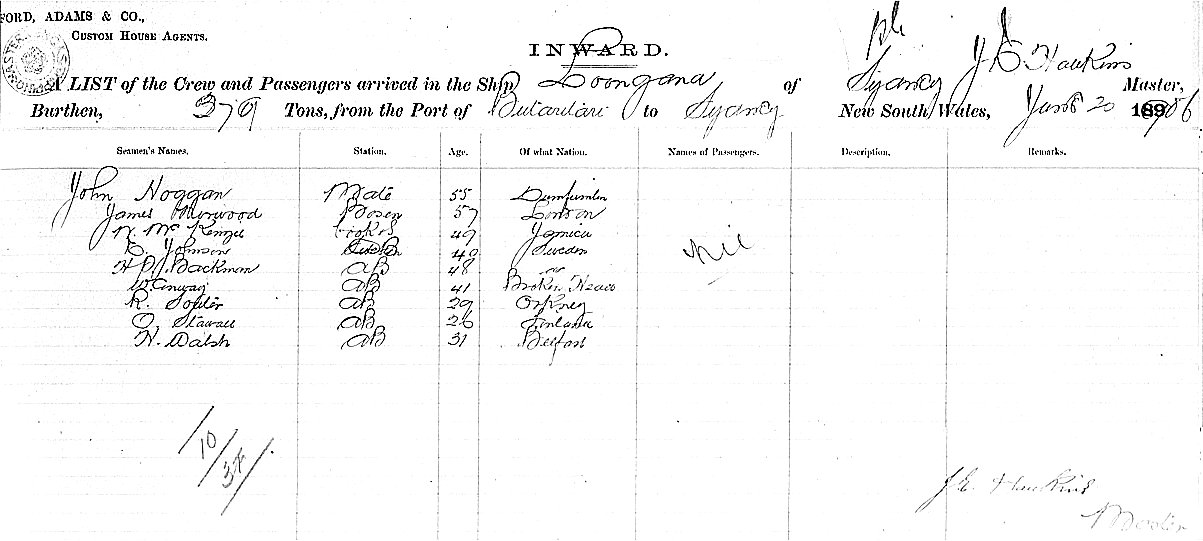 FORD, ADAMS & CO.,
CUSTOM HOUSE AGENTS.
INWARD.
A LIST of the Crew and Passengers arrived in the Ship Loongana of Sydney J E Hawkins Master,
Burthen, 379 Tons, from the Port of Butaritari to Sydney New South Wales, June 20 1896
Seamen's Names. Station. Age. Of what Nation. Names of Passengers. Description. Remarks.
John Hoggan Mate 55 Dumfirmlin
James Norwood Bosen 57 London
N. McKenzie Cook & S 49 Jamica
C. Johnson AB 49 Sweden
H. P. J. Backman AB 48
W. Conway AB 41 Broken Head
R. Souter AB 29 Orkney
O. AB 26 Finland
H. Walsh AB 31 Belfast
Nil
10/
J.E. Hawkins
Master